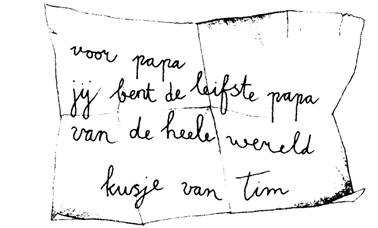 voor papa
jij bent de leifste papa
van de heele wereld
kusje van Tim